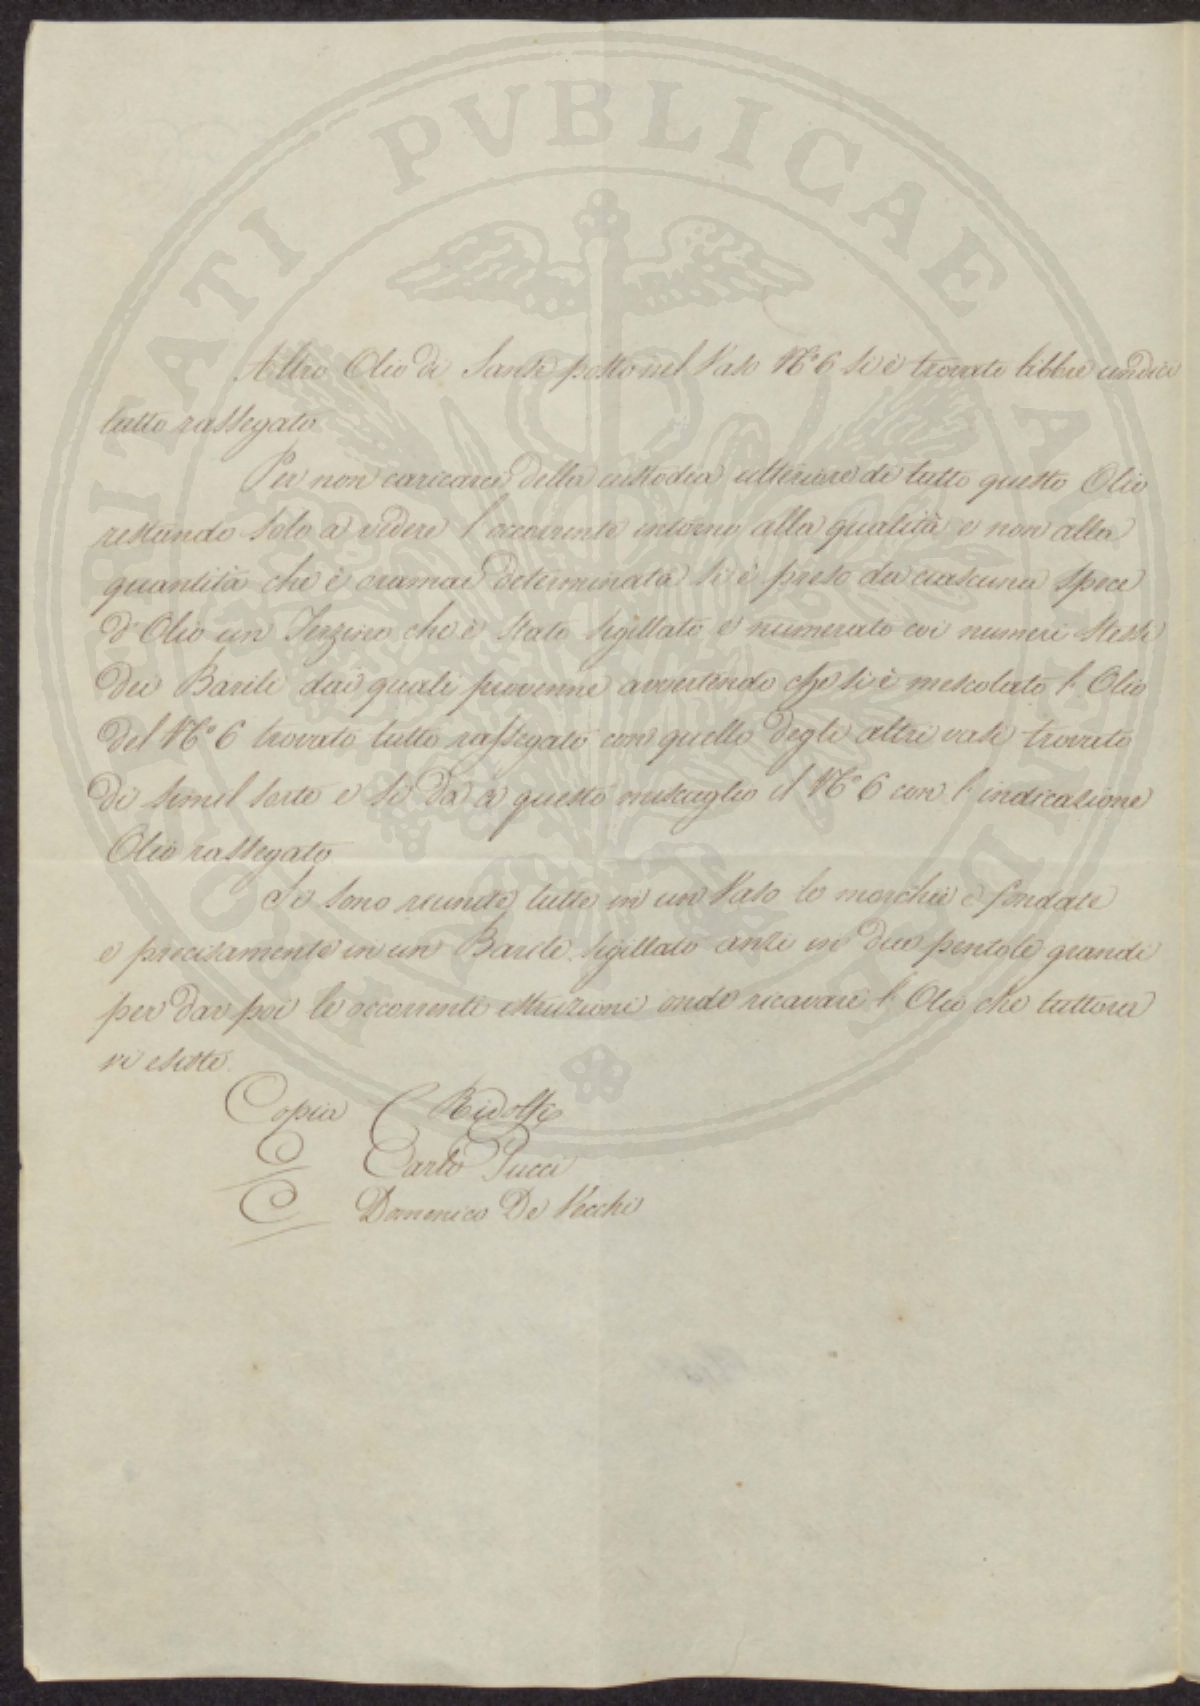 PROSPERITATI PVBLICAE AVGENDAE
Altro Olio di Sanse posto nel Vaso N.° 6 si è trovato libbre undici
tutto rassegato
Per non caricarci della custodia ulteriore di tutto questo Olio
restando solo a vedere l'occorrente intorno alla qualità e non alla
quantità che è oramai determinata si è preso da ciascuna spece
d'Olio un Terzino che è stato sigillato e numerato coi numeri stessi
dei Barili dai quali provenne avvertendo che si è mescolato l'Olio
del N.° 6 trovato tutto rassegato con quello degli altri vasi trovato
di simil sorte e si dà a questo miscuglio il N.° 6 con l'indicazione
Olio rassegato
Si sono riunite tutte in un Vaso le morchie e fondate
e precisamente in un Barile sigillato anzi in due pentole grandi
per dar poi le occorrenti istruzioni onde ricavare l'Olio che tuttora
vi esiste.
Copia C Ridolfi
C Carlo Pucci
C Domenico De Vecchi